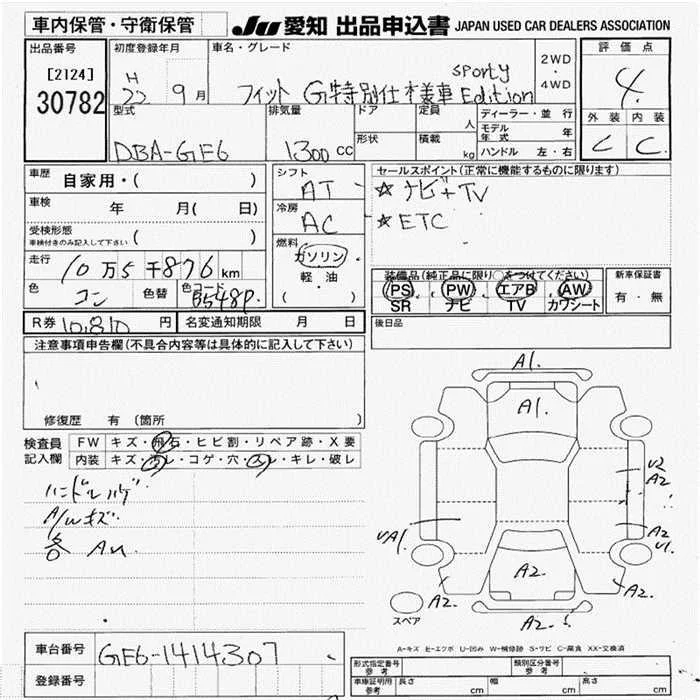 車内保管・守衛保管
JU 愛知 出品申込書 JAPAN USED CAR DEALERS ASSOCIATION
出品番号
[2124]
30782
初度登録年月
H
22 9月
車名・グレード
フィット G特別仕様車 sporty Edition
2WD
・
4WD
評価点
4
外装 内装
C C
型式
DBA-GE6
排気量
1300 cc
ドア
形状
定員
人
積載
kg
ディーラー・並行
モデル年式 年
ハンドル 左・右
車歴 自家用・( )
車検 年 月( 日)
受検形態
車検付きのみ記入して下さい ( )
走行 10万5千876km
色 コン 色替 色コード B548P
シフト
AT
冷房
AC
燃料
ガソリン
・
軽・油
( )
セールスポイント(正常に機能するものに限ります)
☆ ナビ+TV
☆ ETC
装備品(純正品に限り○をつけてください)
PS PW エアB AW
SR ナビ TV カワシート
新車保証書
有・無
後日品
R券 10,810 円 名変通知期限 月 日
注意事項申告欄(不具合内容等は具体的に記入して下さい)
修復歴 有 (箇所 )
検査員
記入欄
FW キズ・飛石・ヒビ割・リペア跡・X要
内装 キズ・汚レ・コゲ・穴・スレ・キレ・破レ
ハンドルハゲ
A/Wキズ
各 AU
A1.
A1.
U2
A2
UA1.
A2
U1.
A2.
A2.
A2.
A2.
スペア
A-キズ E-エクボ U-凹み W-補修跡 S-サビ C-腐食 XX-交換済
車台番号 GE6-1414307
登録番号
形式指定番号
参考
類別区分番号
参考
車庫証明用
参考
長さ cm 幅 cm 高さ cm